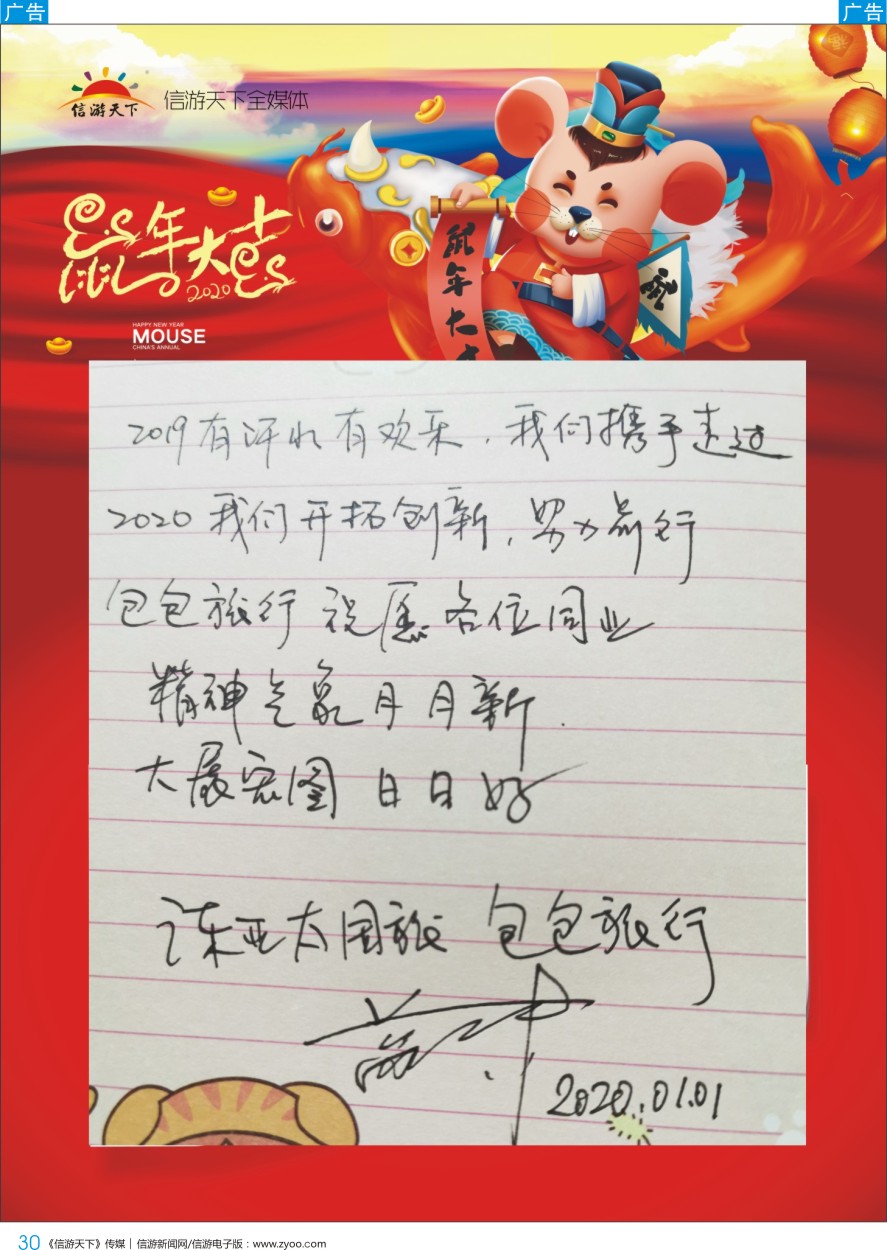 广告
广告
信游天下
信游天下全媒体
鼠年大吉
2020
HAPPY NEW YEAR
MOUSE
CHINA'S ANNUAL
鼠年大吉
2019有汗水有欢乐，我们携手走过
2020 我们开拓创新，努力前行
包包旅行 祝愿各位同业
精神气象月月新.
大展宏图 日日好
东亚太国旅 包包旅行
2020.01.01
30 《信游天下》传媒│信游新闻网/信游电子版：www.zyoo.com